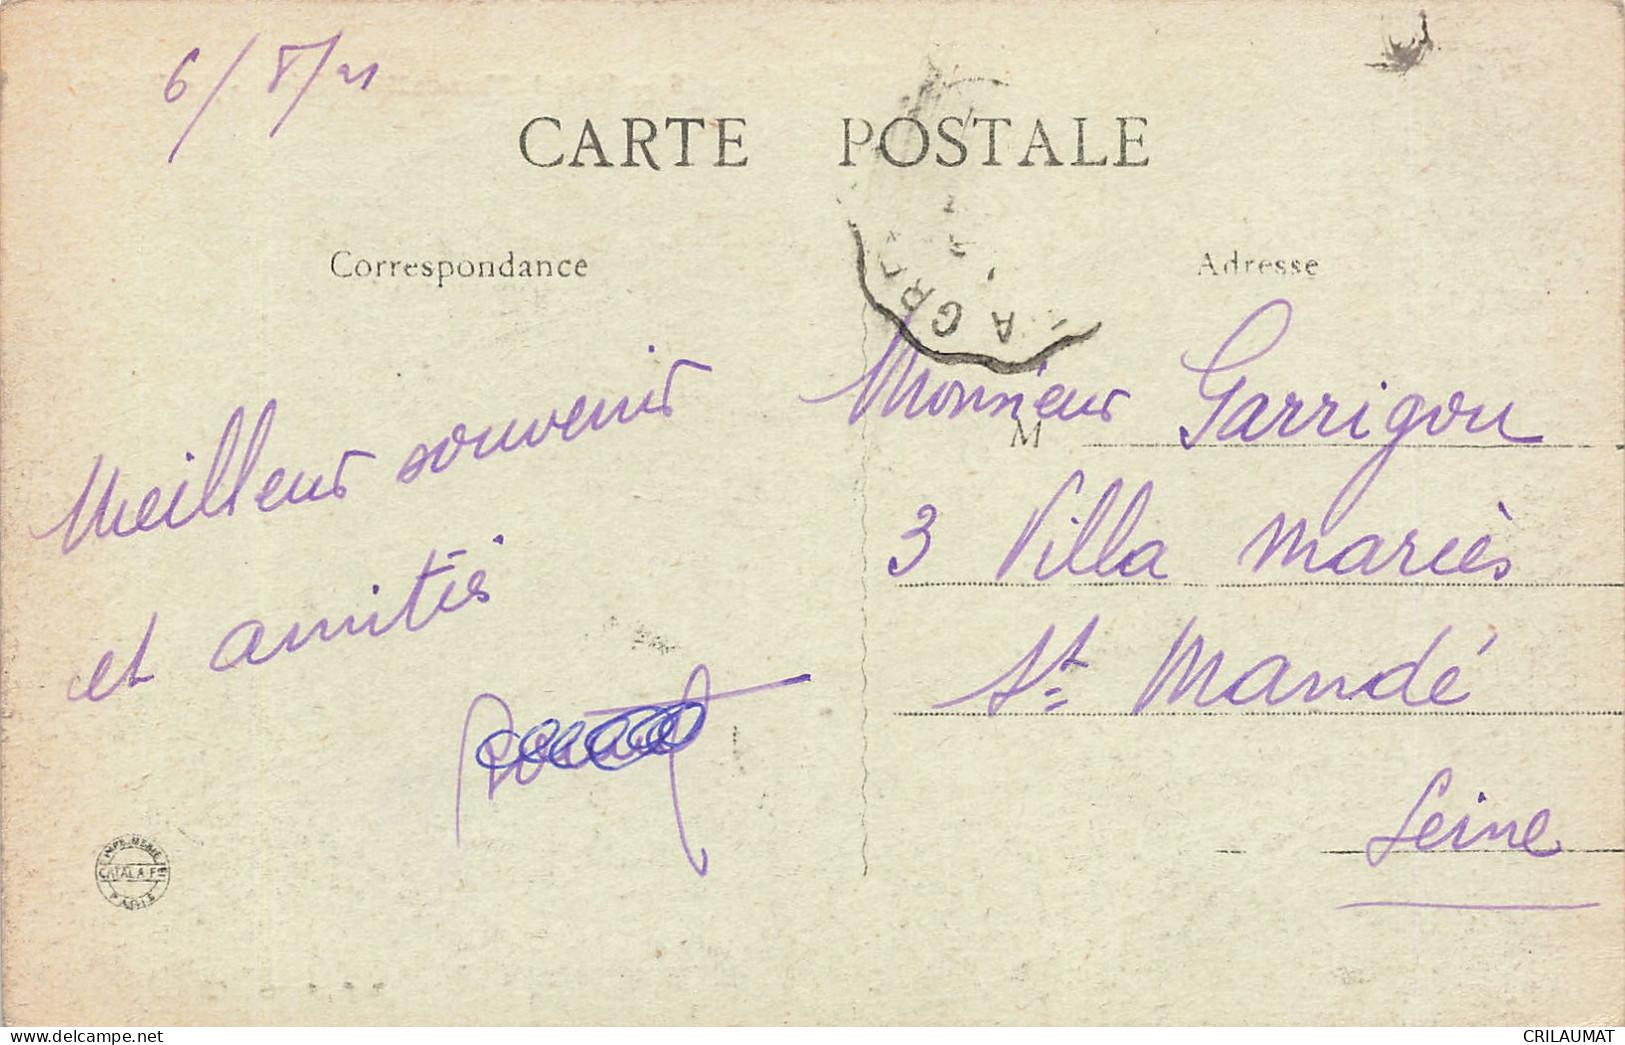 6/8/21
CARTE POSTALE
Correspondance
Adresse
A GR
Meilleur souvenir
et amitiés
M
Monsieur Garrigou
3 Villa Mariès
St Mandé
Seine
IMPRIMERIE
CATALA F
PARIS
www.delcampe.net
CRILAUMAT